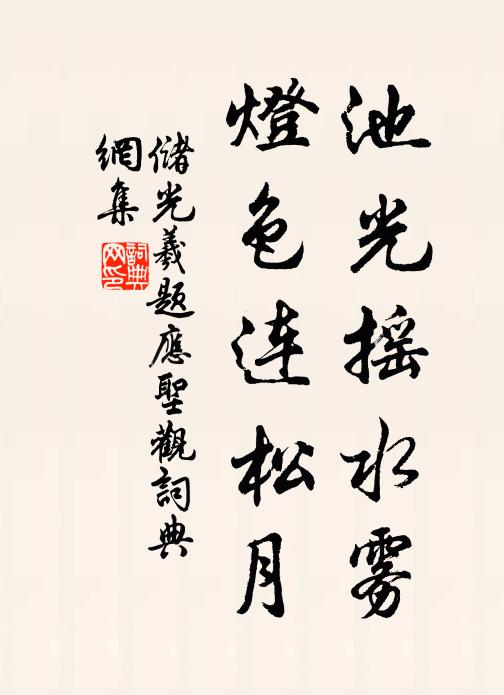 池光摇水雾
燈色连松月
儲光羲题應聖觀詞典
網集
詞典网印